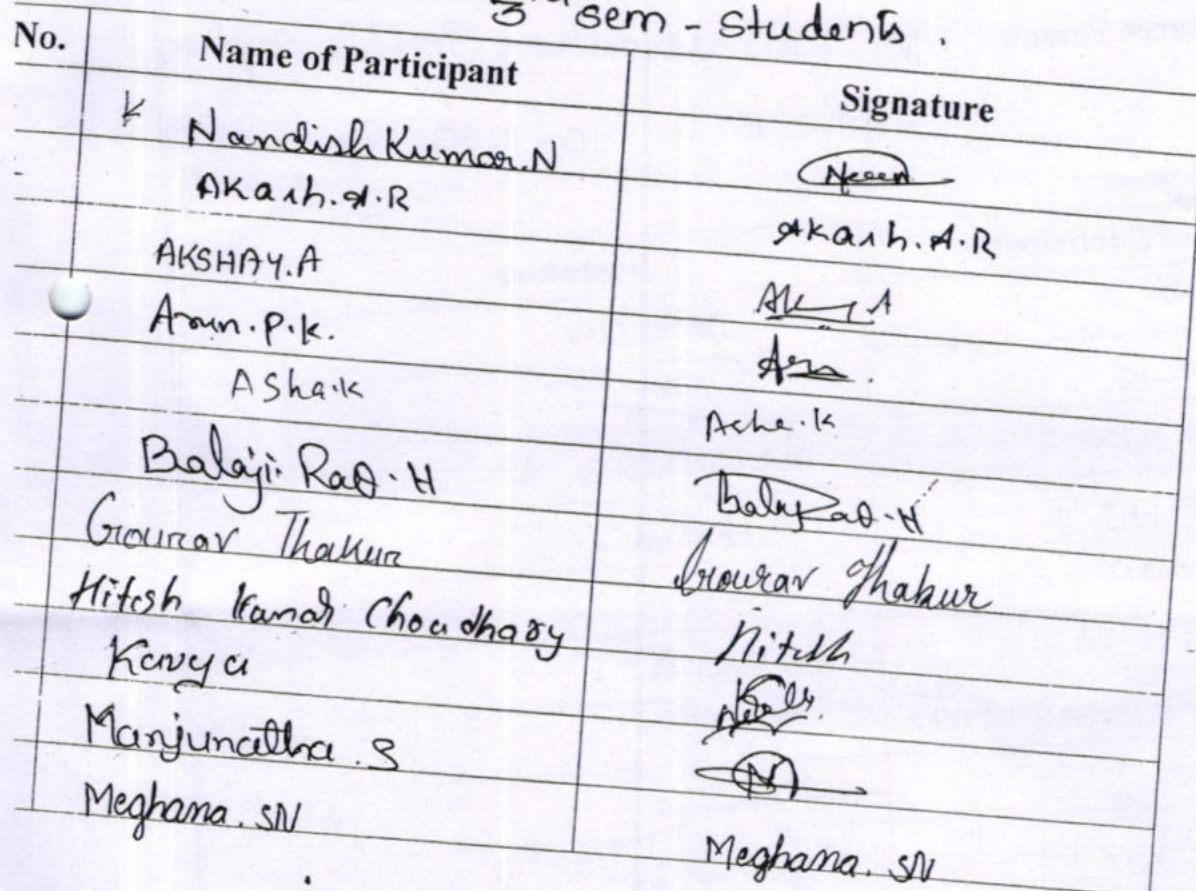 3rd sem - Students
No. Name of Participant Signature
Nandish Kumar.N
Akash.A.R Akash.A.R
AKSHAY.A
Arun.P.K.
Asha.K Asha.K
Balaji Rao H Balaji Rao.H
Gourav Thakur Gourav Thakur
Hitesh Kumar Choudhary Hitesh
Kavya
Manjunatha.S
Meghana.SN Meghana.SN